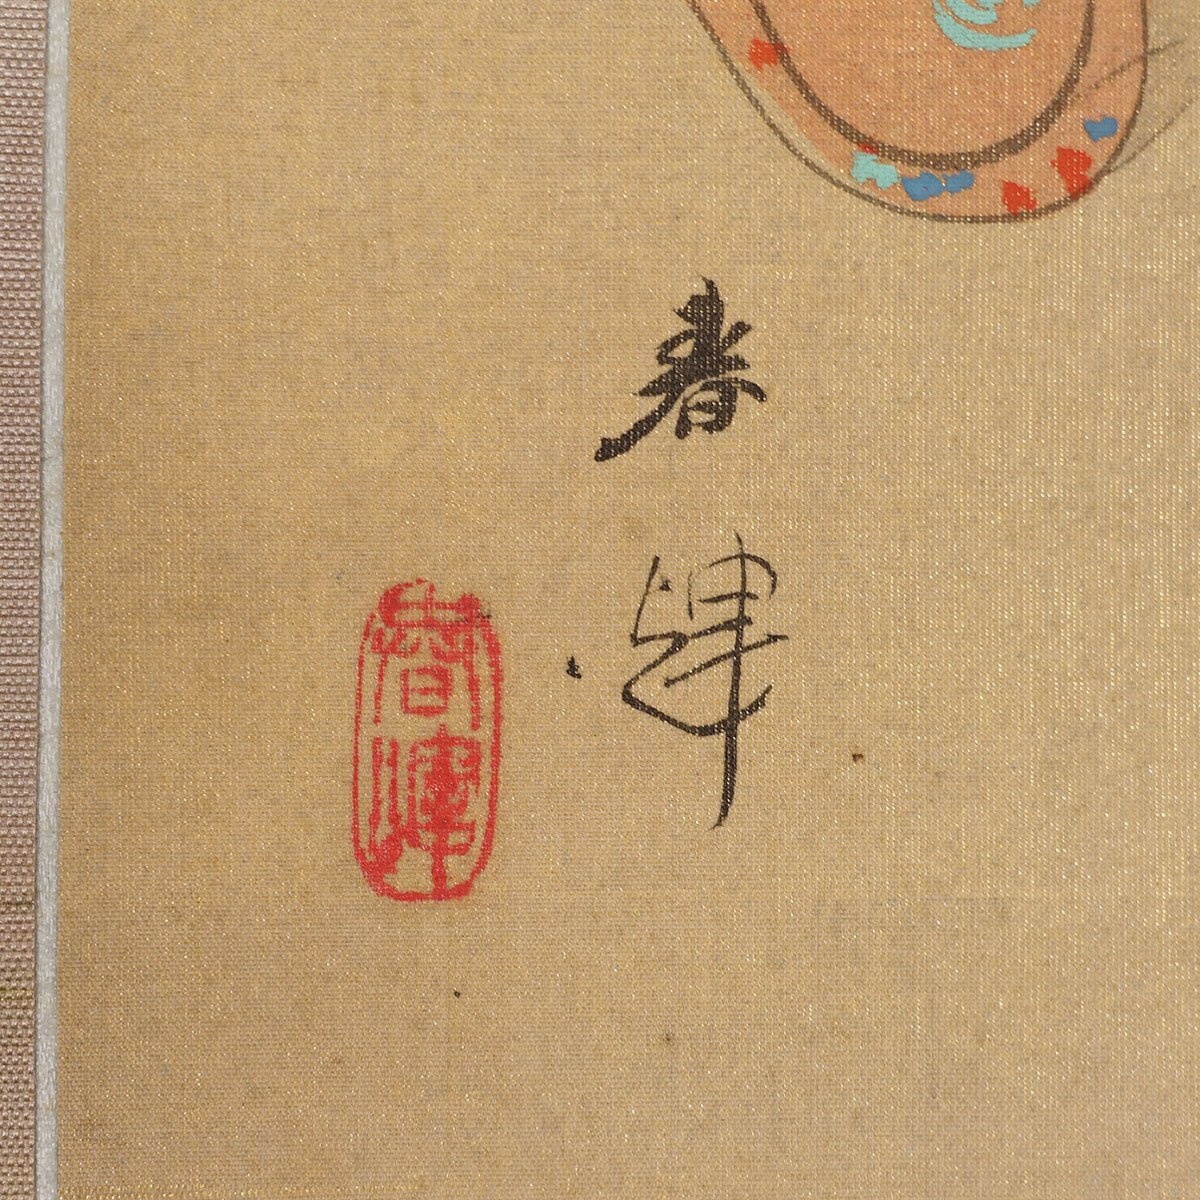 春
暉
春暉